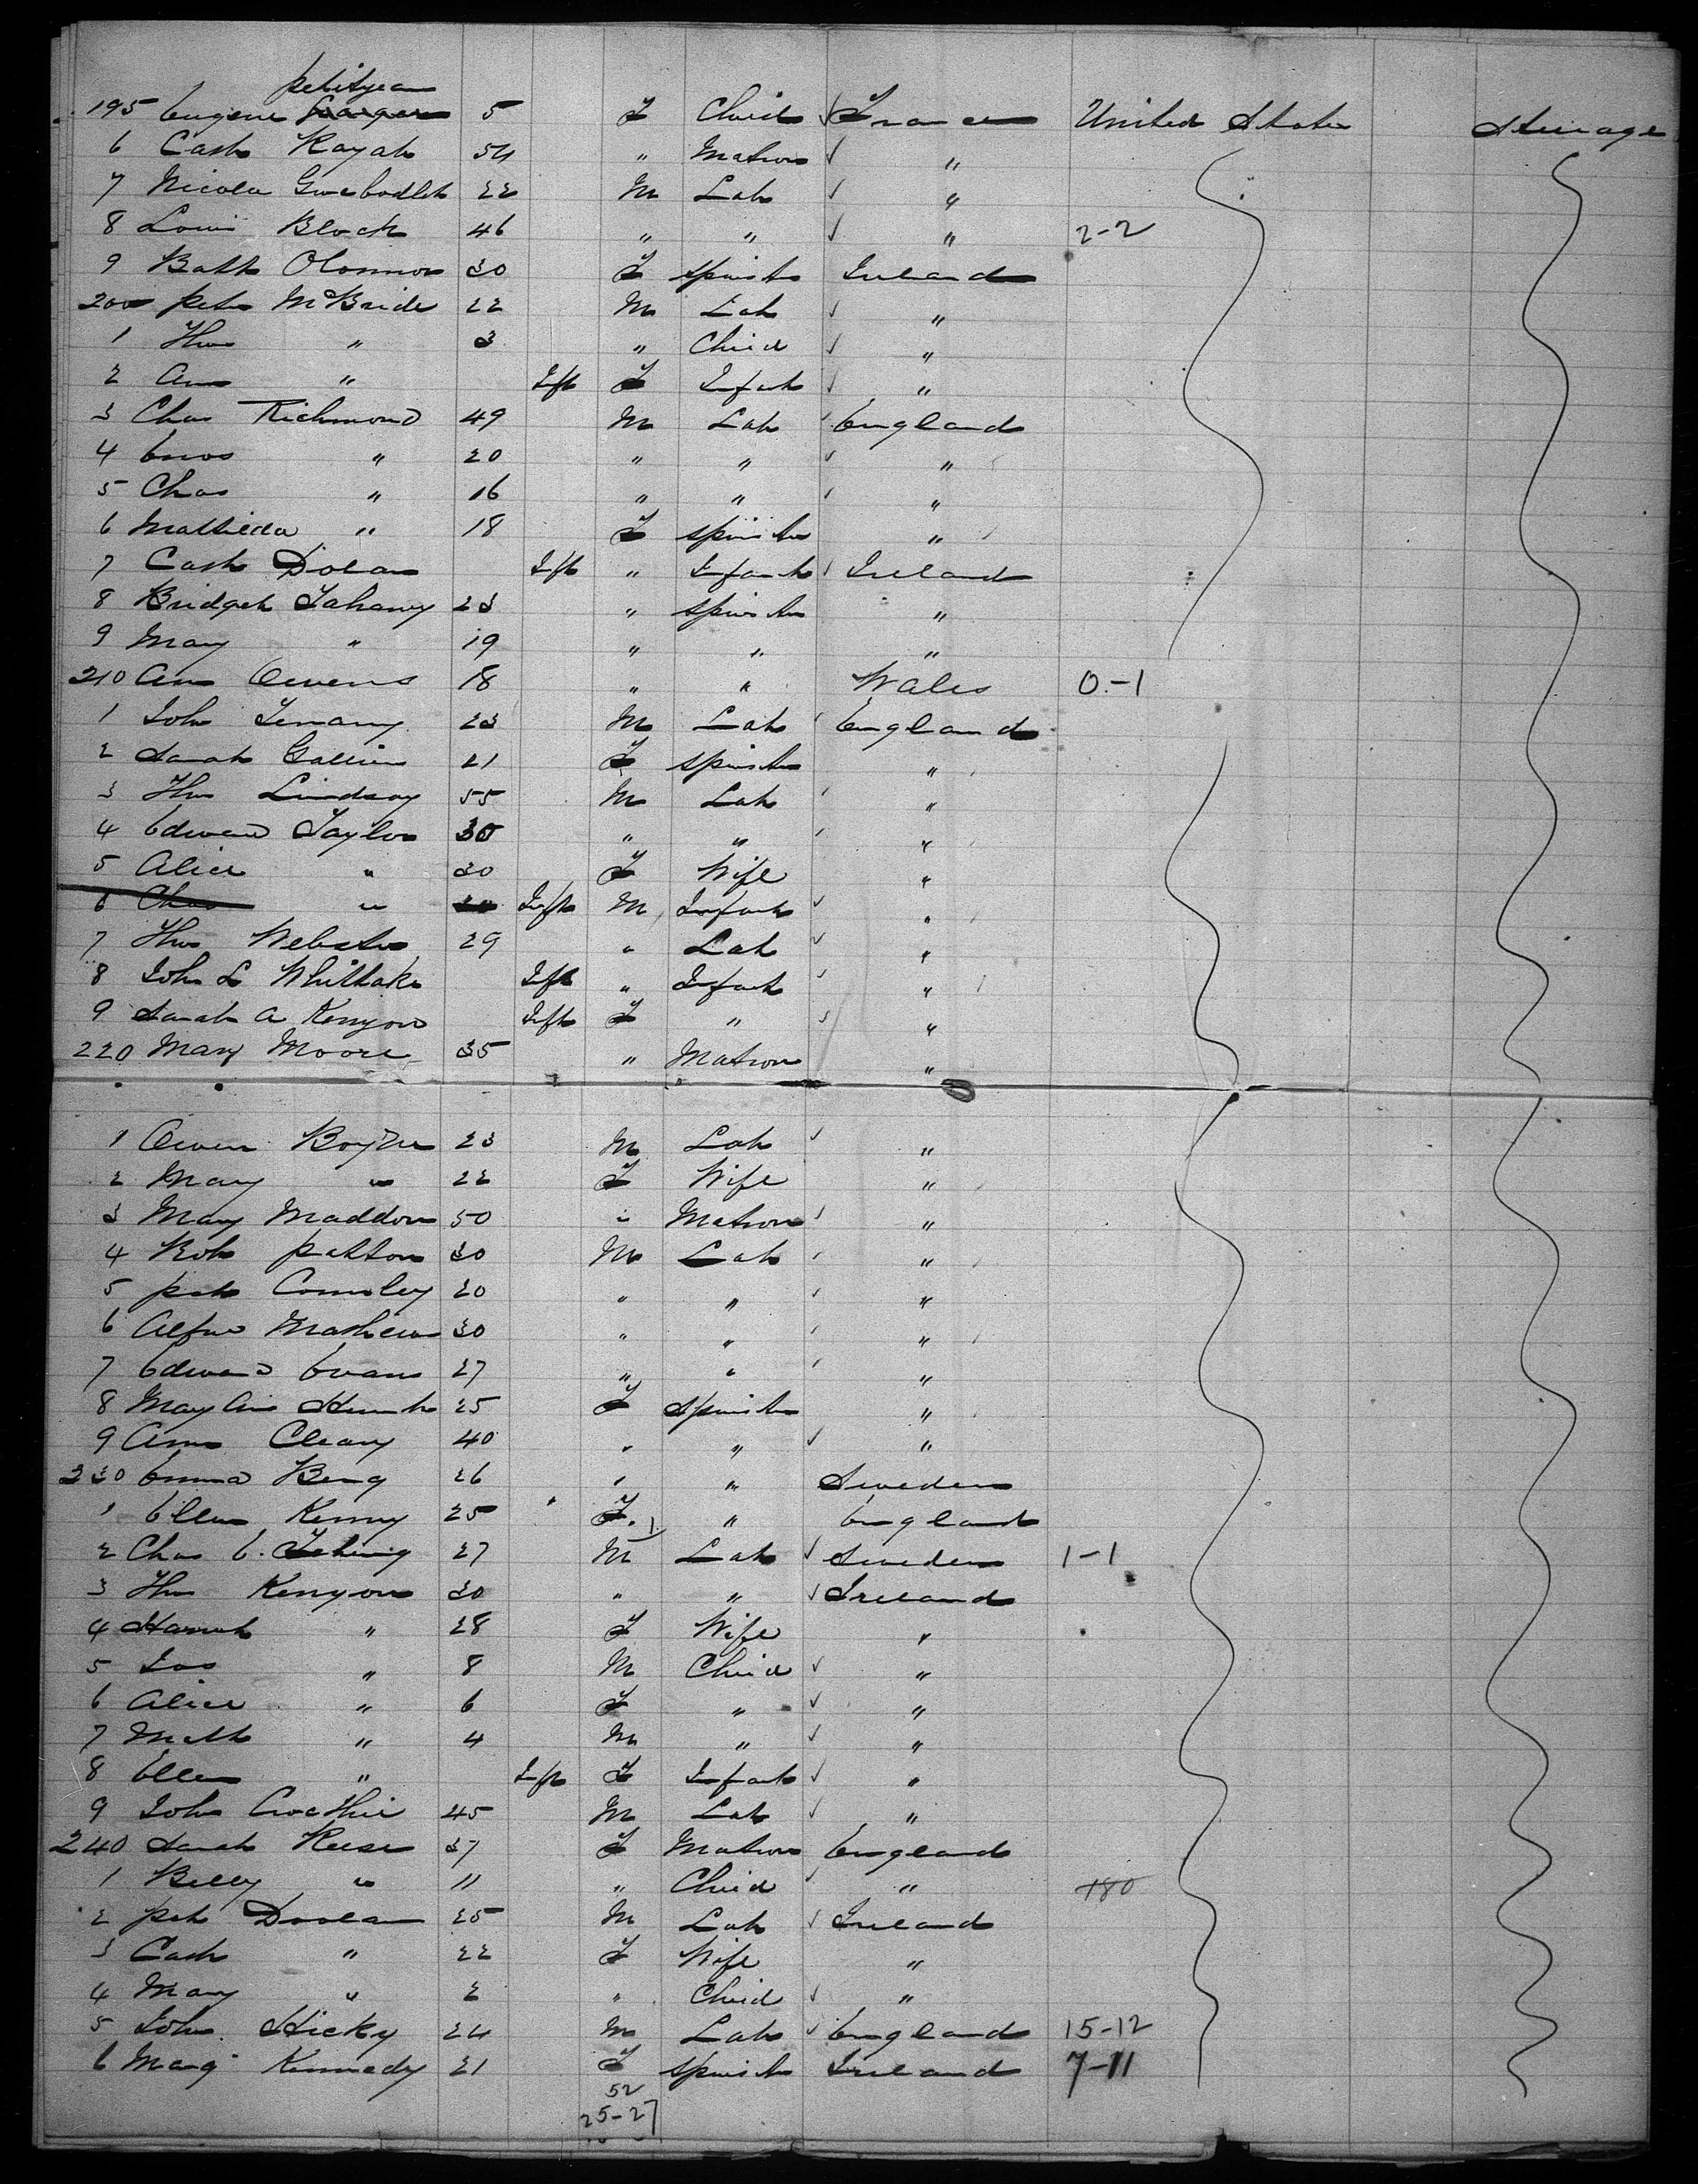 petitjean
195 Eugene 5 F Child France United States Steerage
6 Cath Rayah 54 " Matron "
7 Nicola 22 M Lab "
8 Louis Block 46 " " " 2-2
9 OConnor 30 F Spinster Ireland
200 Pat McBride 22 M Lab "
1 Thos " 3 " Child "
2 Ann " Inft F Infant "
3 Chas Richmond 49 M Lab England
4 Enos " 20 " " "
5 Chas " 16 " " "
6 Mathilda " 18 F Spinster "
7 Cath Dolan Inft " Infant Ireland
8 Bridget Fahany 23 " Spinster "
9 Mary " 19 " " "
210 Ann Owens 18 " " Wales 0-1
1 John 23 M Lab England
2 Sarah 21 F Spinster "
3 Thos Lindsay 55 M Lab "
4 Edward Taylor 30 " " "
5 Alice " 30 F Wife "
6 Chas " Inft M Infant "
7 Thos Webster 29 " Lab "
8 John L Whittaker Inft " Infant "
9 Sarah A Kenyon Inft F " "
220 Mary Moore 35 " Matron "
1 Owen 23 M Lab "
2 Mary " 22 F Wife "
3 Mary Maddon 50 " Matron "
4 Rob Patton 30 M Lab "
5 Pat 20 " " "
6 Alfred Mathews 30 " " "
7 Edward Evans 27 " " "
8 Mary Ann 25 F Spinster "
9 Ann Cleary 40 " " "
230 Emma Berg 26 " " Sweden
1 Ellen Kenny 25 F. " England
2 Chas E. 27 M Lab Sweden 1-1
3 Thos Kenyon 30 " " Ireland
4 Hannah " 28 F Wife "
5 Jas " 8 M Child "
6 Alice " 6 F " "
7 Math " 4 M " "
8 Ellen " Inft F Infant "
9 John 45 M Lab "
240 Sarah Reese 37 F Matron England
1 " 11 " Child " 180
2 Pat Doolan 25 M Lab Ireland
3 Cath " 22 F Wife "
4 Mary " 2 " Child "
5 John Hicky 24 M Lab England 15-12
6 Marg Kennedy 21 F Spinster Ireland 7-11
52
25-27